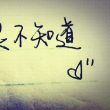 不知道